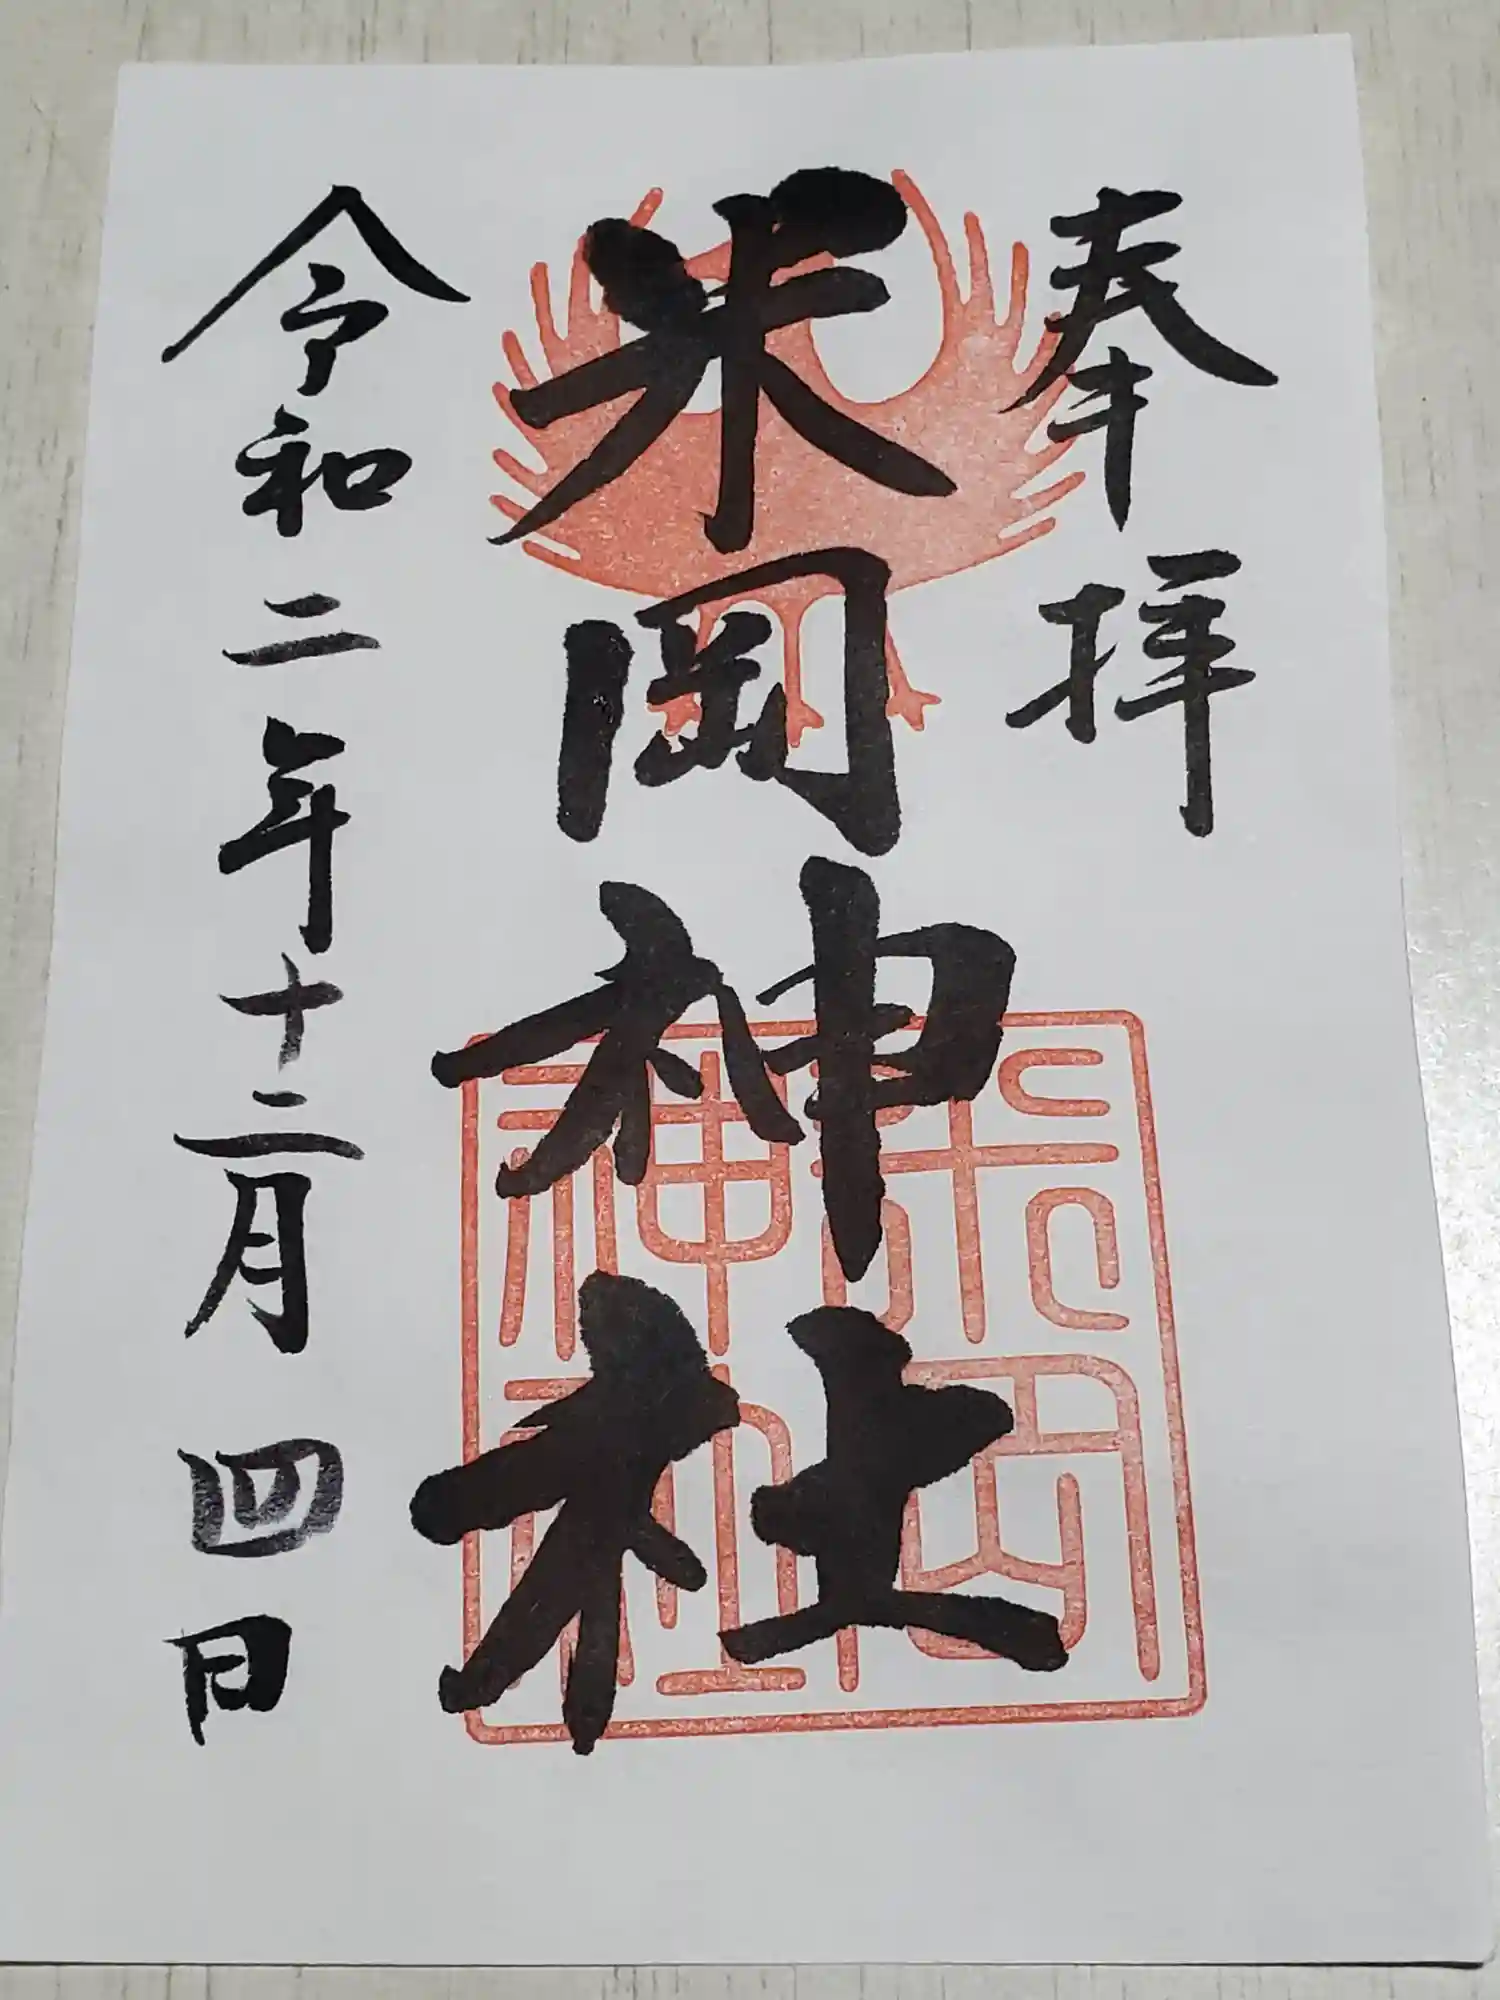 奉拝
米岡神社
米岡神社
令和二年十二月四日